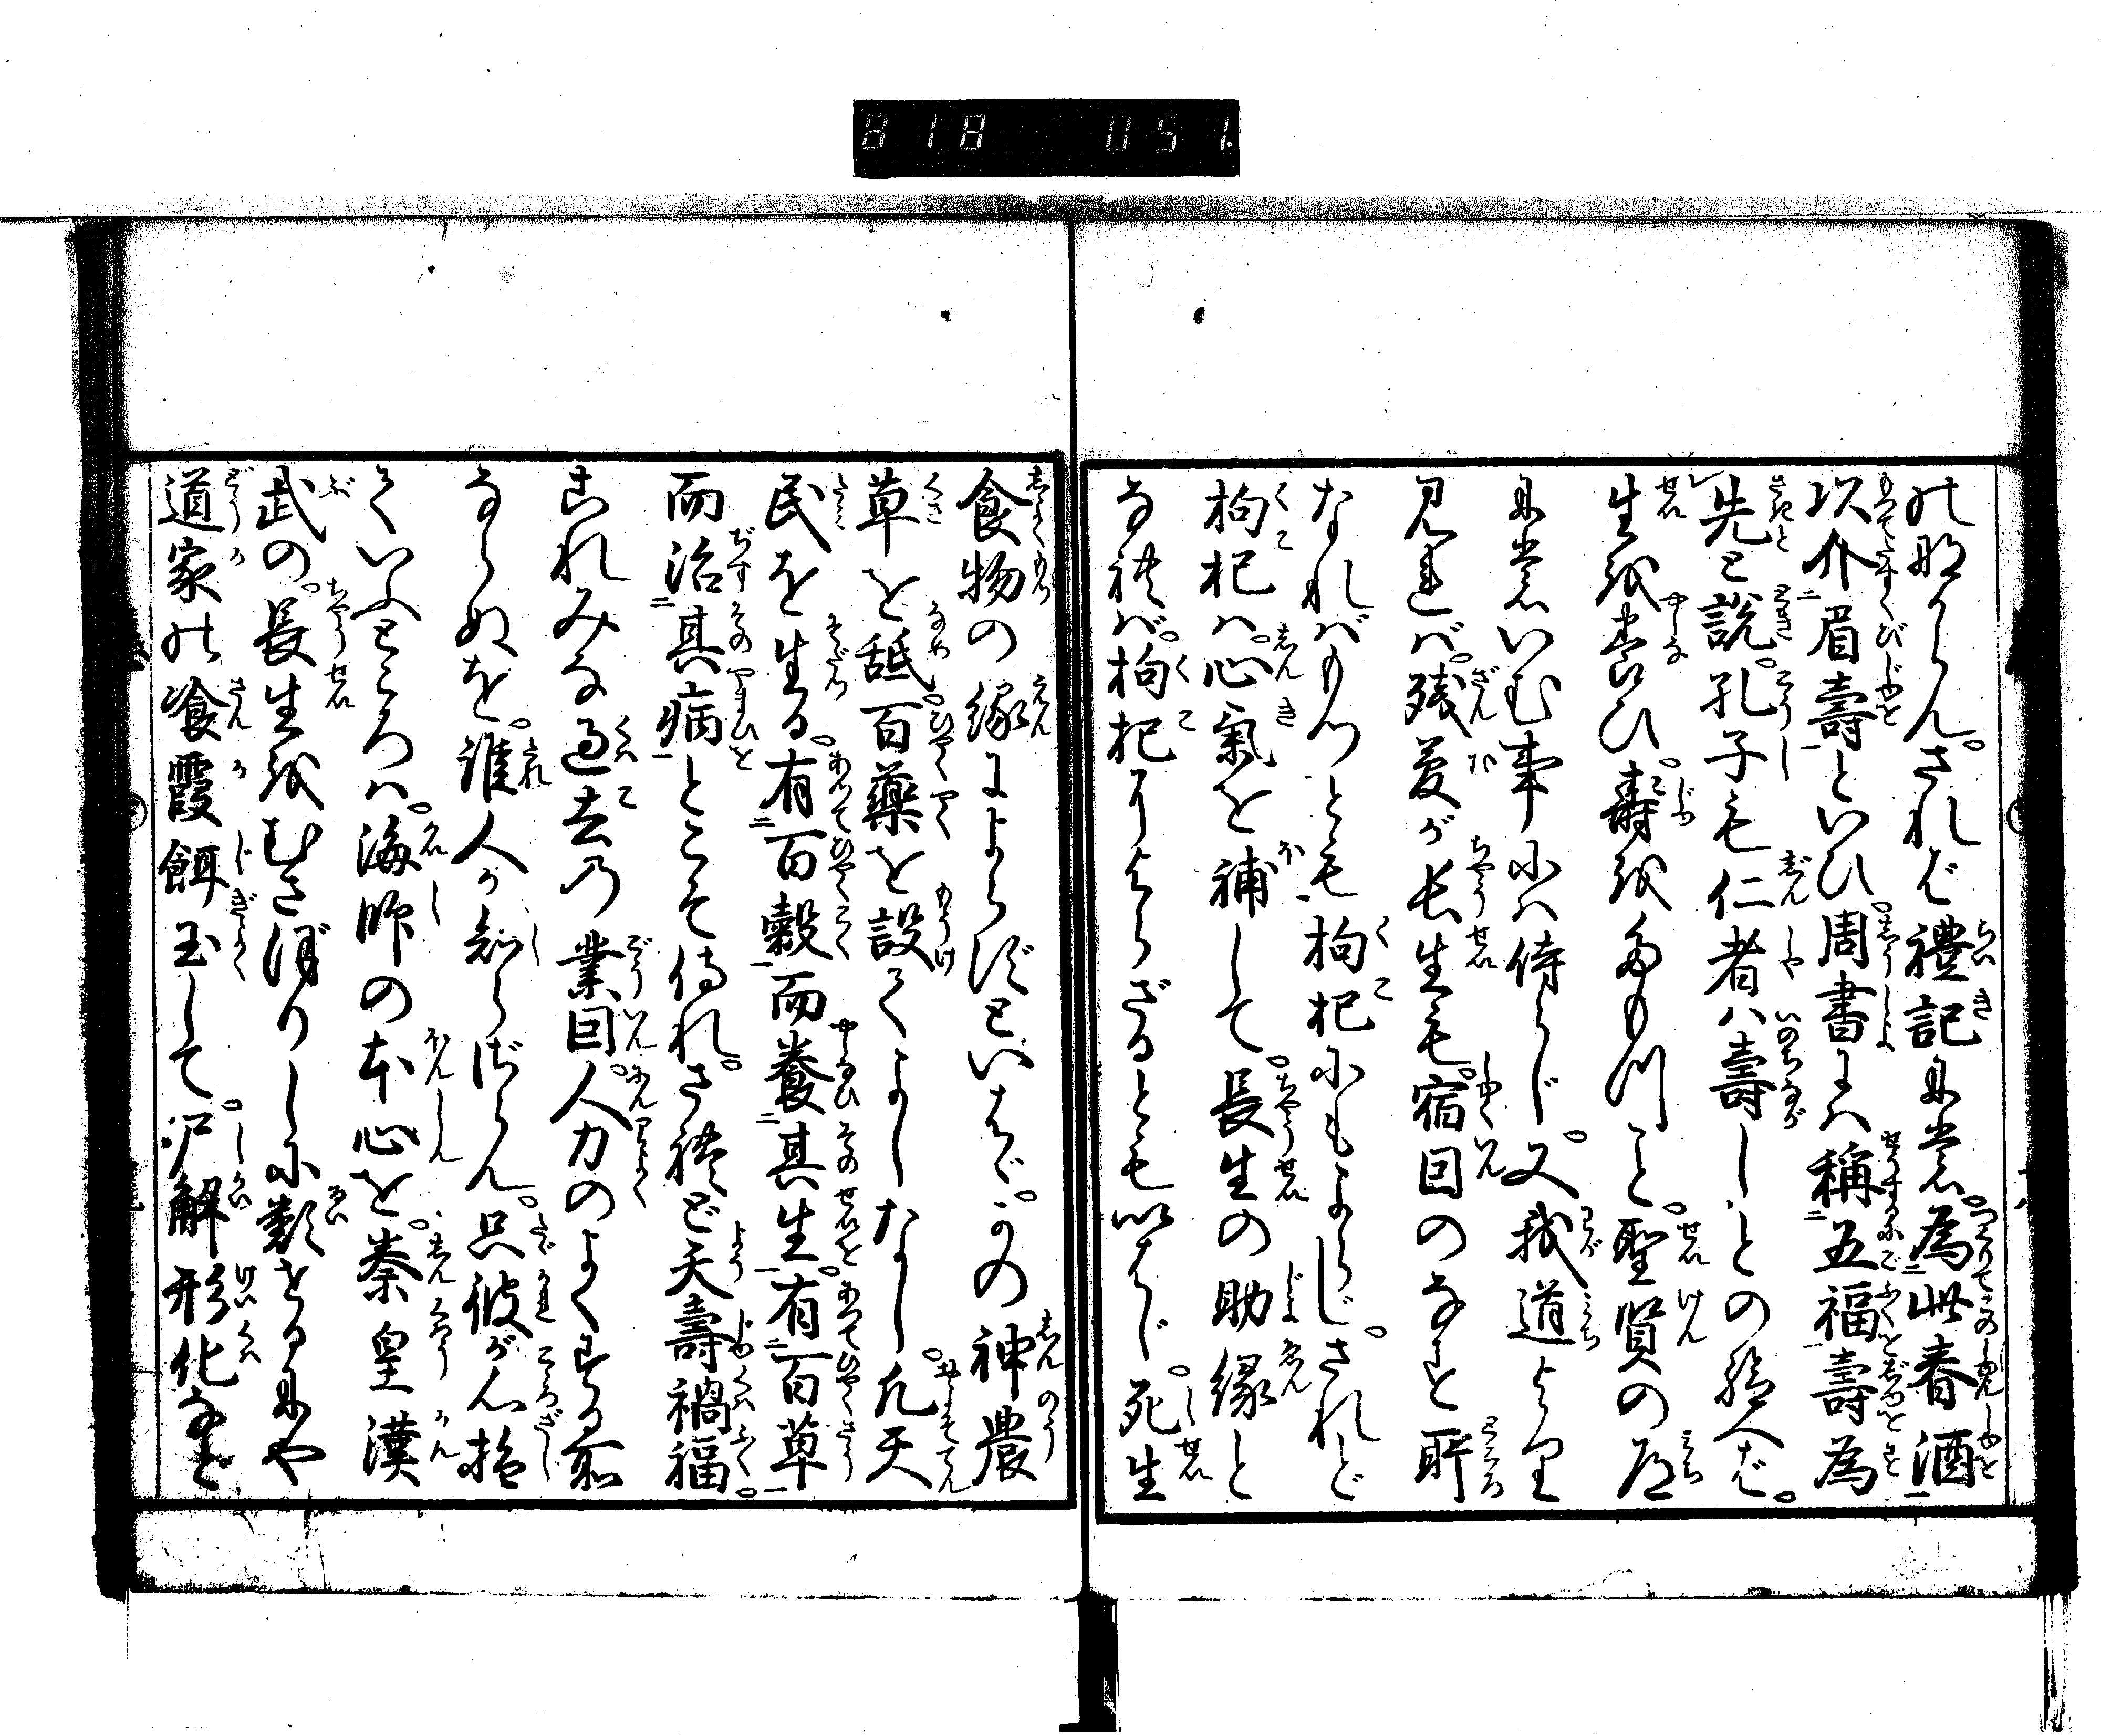 818 051
のならん。されば禮記にも。為此春酒
以介眉壽といひ。周書には稱五福壽為
先と説。孔子も仁者ハ壽しとの給へば。
生を養ひ。壽をたもつこと。聖賢の道
にもいむ事にハ侍らじ。又我道より
見れば。残夢が長生も。宿因のなす所
なればもつとも枸杞にもよらじ。されど
枸杞ハ。心氣を補して。長生の助縁と
なれば。枸杞によらざるともいはじ。死生
食物の縁によらずといはゞ。かの神農
草を舐。百藥を設てよしなし。凡天
民を生る。有百穀而養其生。有百草
而治其病とこそ侍れ。されど夭壽禍福。
これみな過去の業因。人力のよくする所
ならぬを。誰人か知らざらん。只彼が心操
をいふところハ。海師の本心を。秦皇漢
武の。長生をむさぼりしに類するにや
道家の飡霞餌玉して。尸解形化など